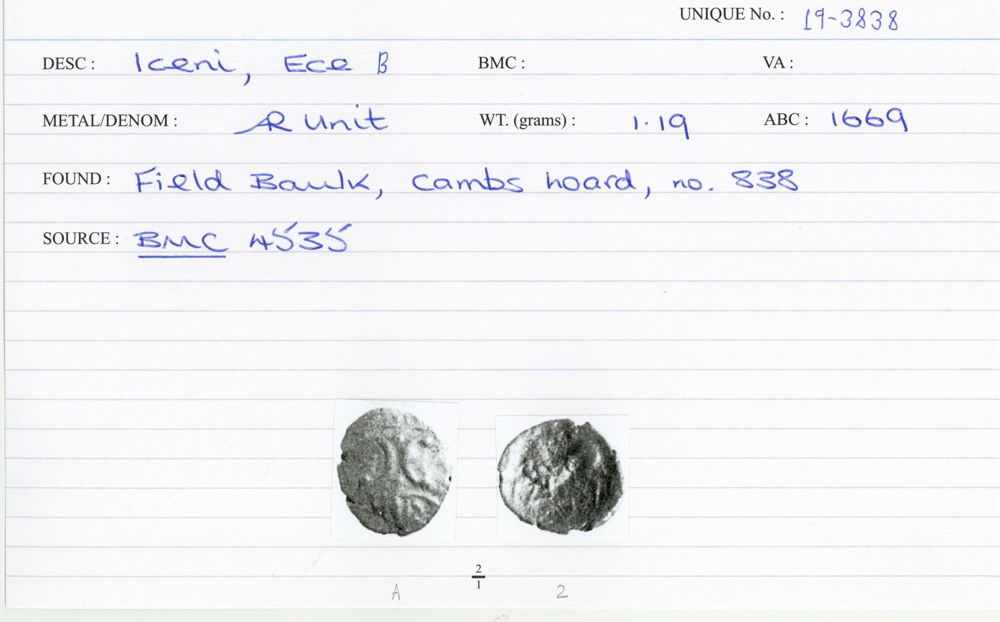 UNIQUE No. : 19-3838
DESC : Iceni, Ece B BMC : VA :
METAL/DENOM : AR Unit WT. (grams) : 1.19 ABC : 1669
FOUND : Field Baulk, Cambs hoard, no. 838
SOURCE : BMC 4535
2/1
A 2